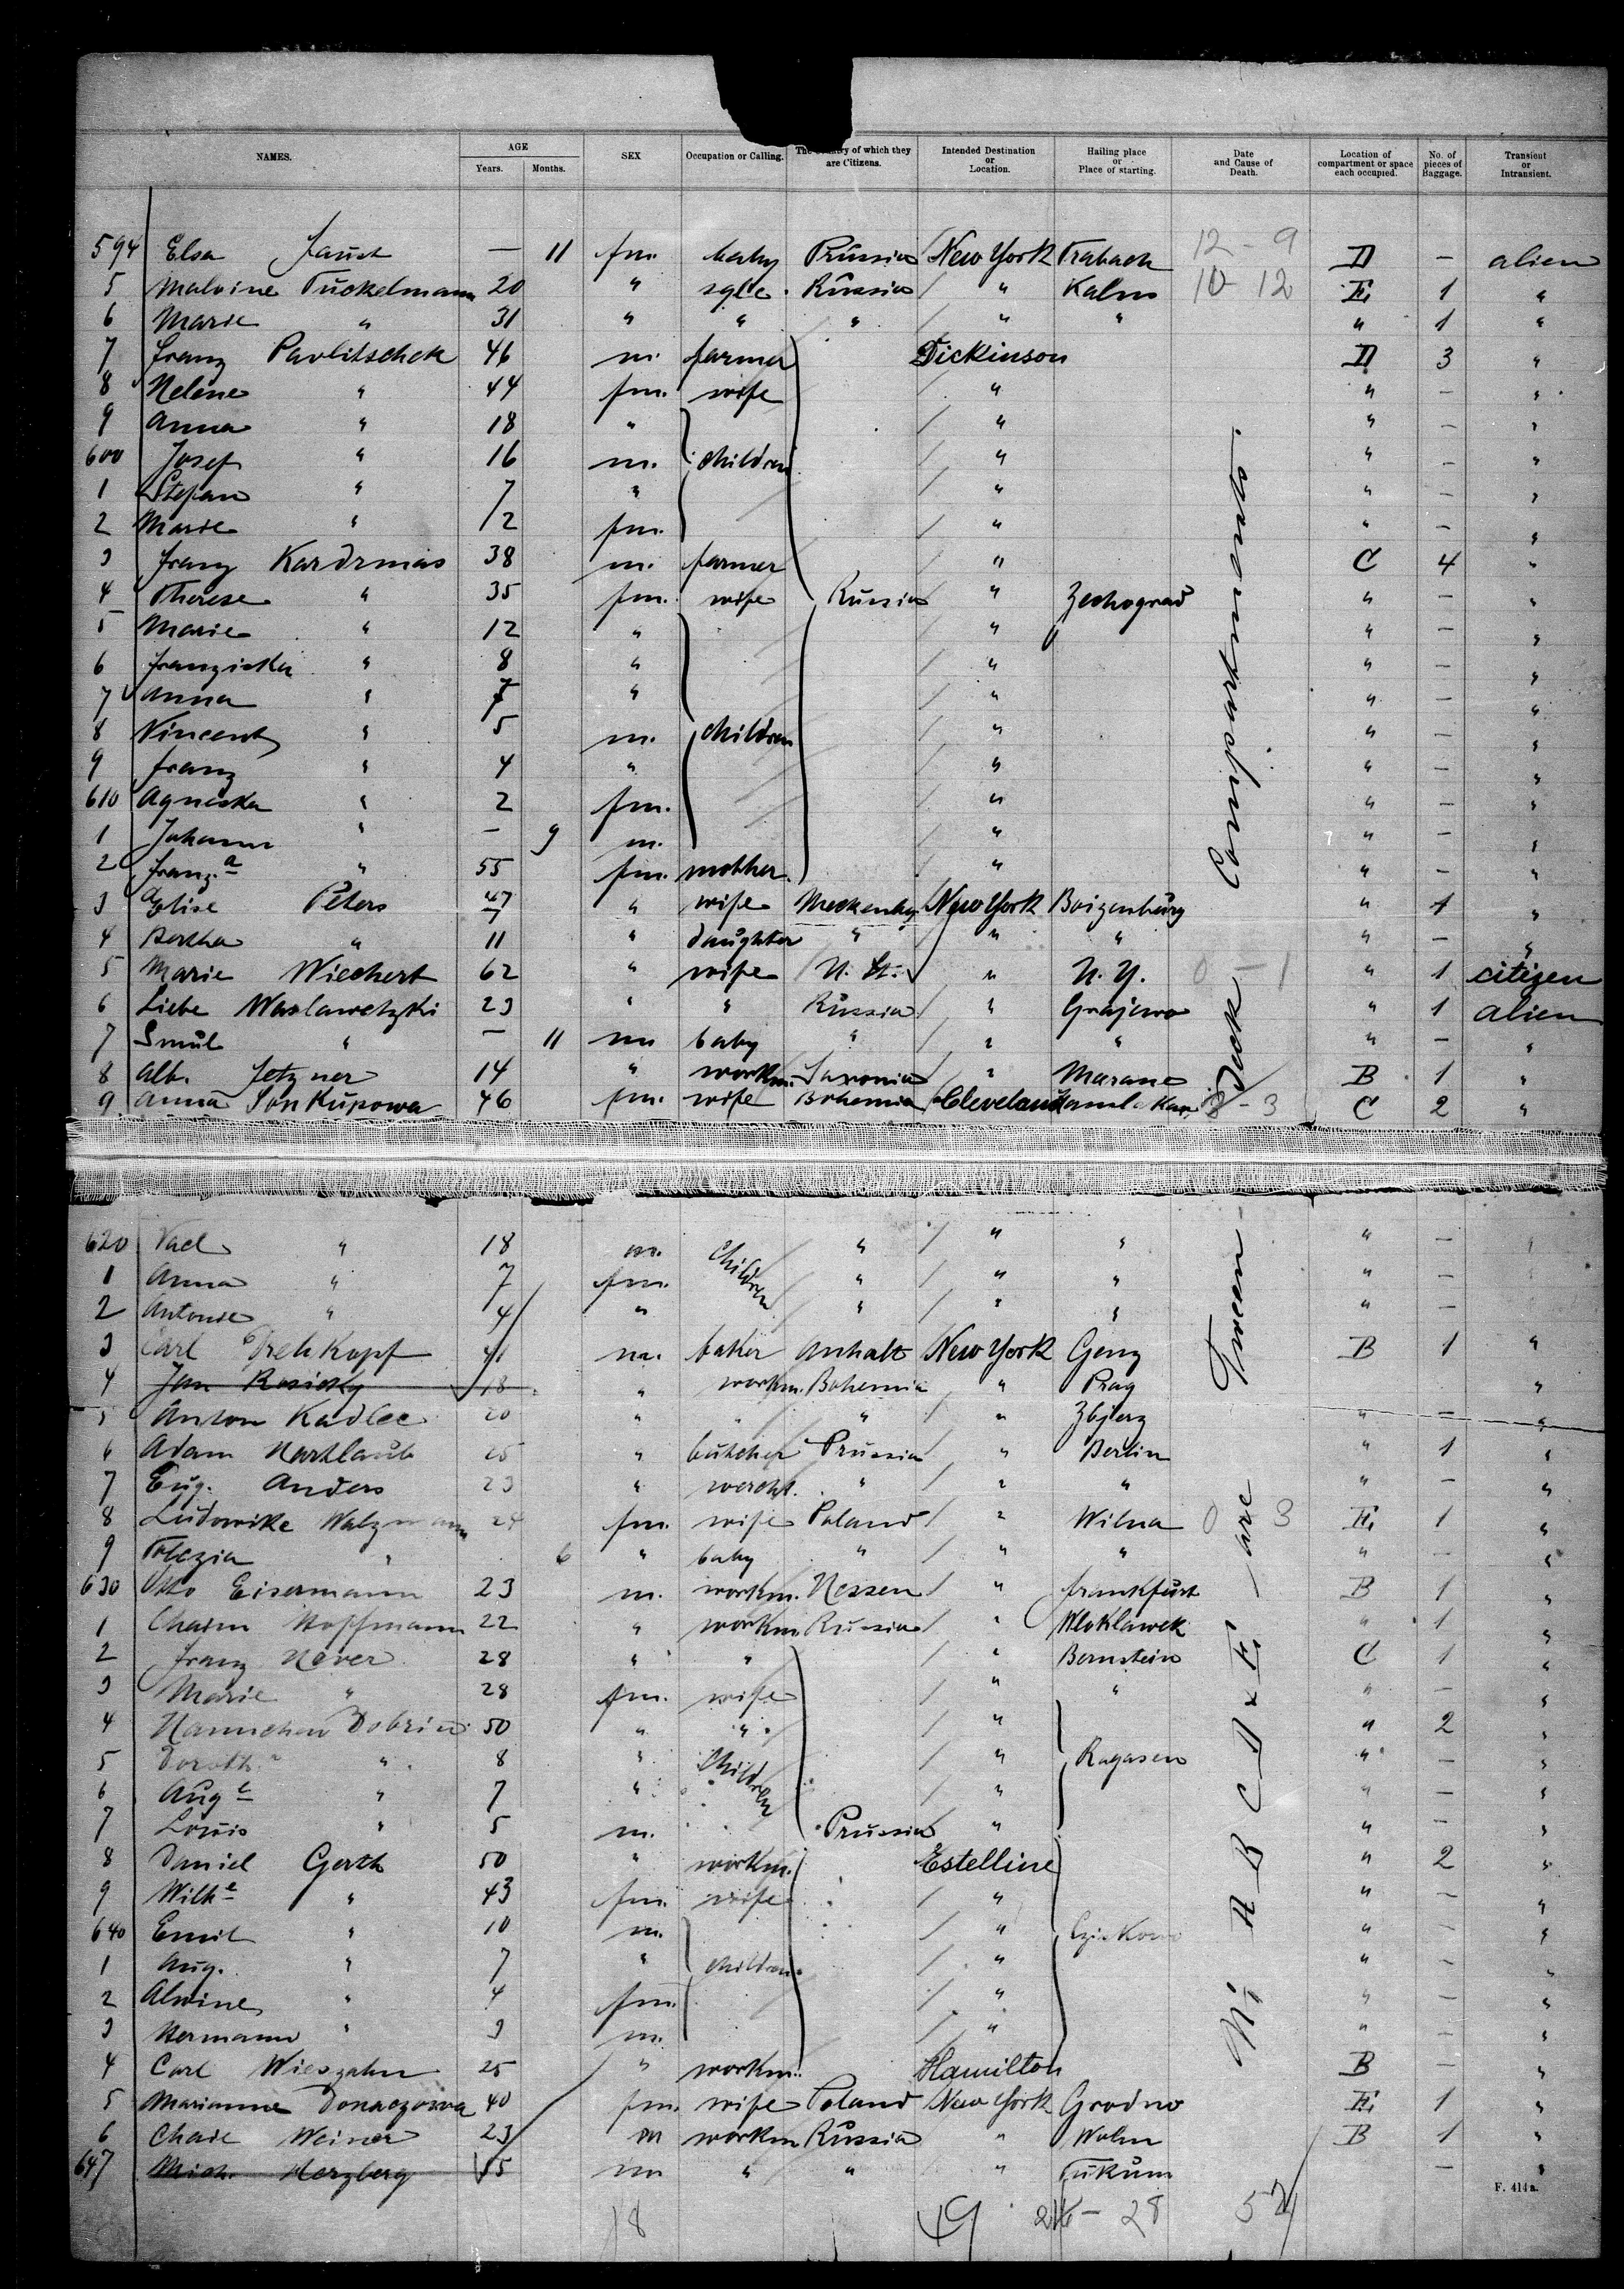 NAMES. AGE Years. Months. SEX Occupation or Calling. The Country of which they are Citizens. Intended Destination or Location. Hailing place or Place of starting. Date and Cause of Death. Location of compartment or space each occupied. No. of pieces of Baggage. Transient or Intransient.
594 Elsa — 11 fm. baby Prussia New York Trabach 12 - 9 D — alien
5 Malvine Tuckelmann 20 " sgle. Russia " Kalno 10 - 12 E, 1 "
6 Marie " 31 " " " " " " 1 "
7 Franz Pavlitschek 46 m. farmer Dickinson D 3 "
8 Helene " 44 fm. wife " " — "
9 Anna " 18 " " " — "
600 Josef " 16 m. children " " — "
1 Stefan " 7 " " " — "
2 Marie " 2 fm. " " — "
3 Franz Kardrmas 38 m. farmer " C 4 "
4 Therese " 35 fm. wife Russia " Zechograd " — "
5 Marie " 12 " " " — "
6 Franziska " 8 " " " — "
7 Anna " 7 " " " — "
8 Vincent " 5 m. children " " — "
9 Franz " 4 " " " — "
610 Agneska " 2 fm. " " — "
1 Johann " — 9 m. " " — "
2 Franz.a " 55 fm. mother " " — "
3 Elise Peters 47 " wife Meckenbg. New York Boizenburg " 1 "
4 Bertha " 11 " daughter " " " " — "
5 Marie Wiechert 62 " wife U. St. " N. Y. 0 - 1 " 1 citizen
6 Liebe Waslawetzki 23 " " Russia " Grajewo " 1 alien
7 Smul " — 11 m baby " " " " — "
8 Alb. Jetzner 14 " workm. Saxonia " Marane B 1 "
9 Anna Sonkupowa 46 fm. wife Bohemia Cleveland - 3 C 2 "
620 Vacl " 18 m. Children " " " " — "
1 Anna " 7 fm. " " " " —
2 Antonie " 4 " " " " " —
3 Carl Drehkopf 41 m. baker Anhalt New York Genz B 1 "
4 Jan Rosicky 18 " workm. Bohemia " Prag "
5 Anton Kadlec 20 " " " " Zbjerz " — "
6 Adam Hartlaub 25 " butcher Prussia " Berlin " 1 "
7 Eug. Anders 23 " mercht. " " " " — "
8 Ludowike Walzmann 24 fm. wife Poland " Wilna 0 3 E, 1 "
9 " 6 " baby " " " " — "
630 Otto Eisermann 23 m. workm. Hessen " Frankfurt B 1 "
1 Chaim Hopfmann 22 " workm. Russia " Wloklawek " 1 "
2 Franz Never 28 " " " Bernstein C 1 "
3 Marie " 28 fm. wife " " " — "
4 Hannchen Dobrin 50 " " " " 2 "
5 Doroth.a " 8 " Children " Rogasen " — "
6 Aug.e " 7 " " " — "
7 Louis " 5 m. Prussia " " — "
8 Daniel Gerth 50 " workm. Estelline " 2 "
9 Wilh.e " 43 fm. wife " " — "
640 Emil " 10 m. " " — "
1 Aug. " 7 " children " " — "
2 Alwine " 4 fm. " " — "
3 Hermann " 3 m. " " — "
4 Carl Wieszahn 25 " workm. Hamilton B — "
5 Marianne Donaczowa 40 fm. wife Poland New York Grodno E, 1 "
6 Chaie Weiner 23 m workm Russia " Wolm B 1 "
647 Mich. Herzberg 55 m " " " Tukum — "
F. 414a.
18 19 26 - 28 52
A B C D & E, are Tween-Deck Compartments.